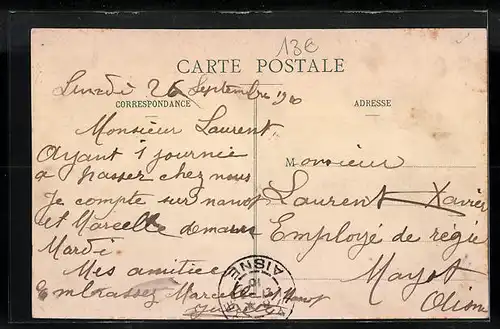 13e
CARTE POSTALE
Lundi 26 Septembre 1910
CORRESPONDANCE
ADRESSE
Monsieur Laurent,
Ayant 1 journée
a passer chez nous
Je compte sur nanot
et Marcelle demain
Mardi
Mes amitiés
Embrassez Marcelle et Nanot
Monsieur
Laurent Xavier
Employé de régie
Mayot
Aisne
AISNE